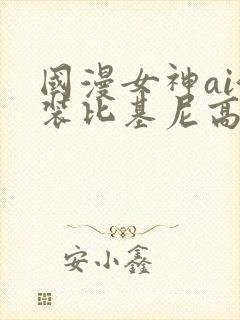 國漫女神ai
裝比基尼高
安小鑫